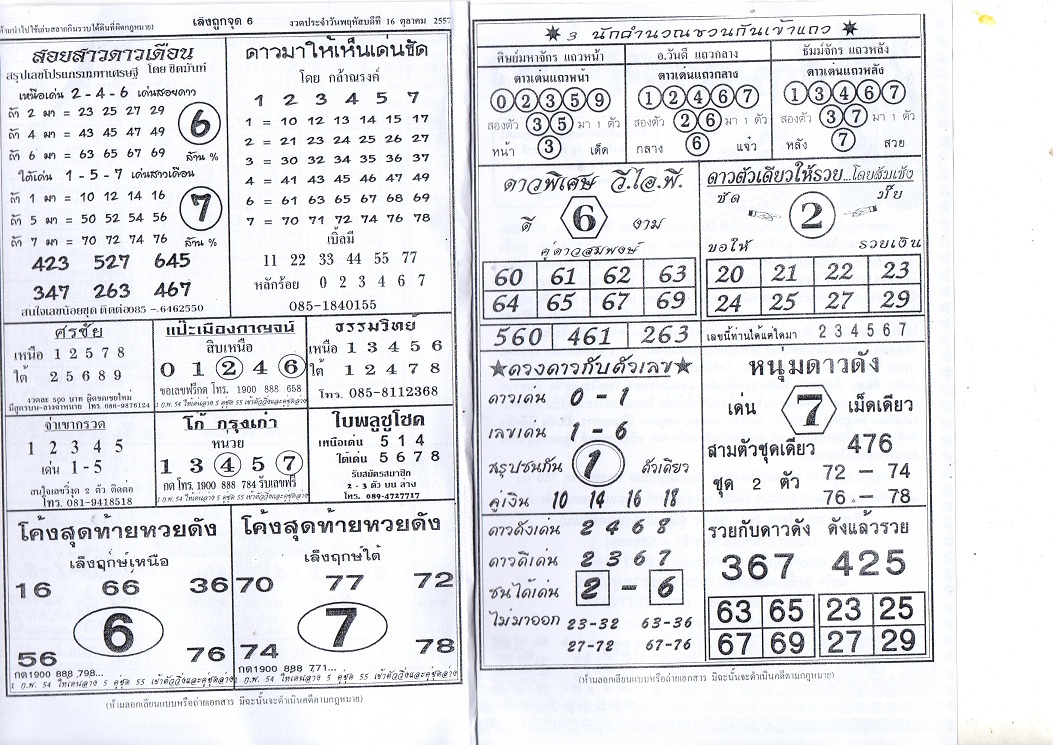 (ห้ามนำไปใช้เล่นสลากกินรวบได้ดินที่ผิดกฎหมาย) เล็งถูกจุด 6 งวดประจำวันพฤหัสบดีที่ 16 ตุลาคม 2557
สอยสาวดาวเดือน
สรุปเลขโปรแกรมมหาเศรษฐี โดย ชิตมันท์
เหนือเด่น 2 - 4 - 6 เด่นสอยดาว
ถ้า 2 มา = 23 25 27 29
ถ้า 4 มา = 43 45 47 49
6
ถ้า 6 มา = 63 65 67 69 ล้าน %
ใต้เด่น 1 - 5 - 7 เด่นสาวเดือน
ถ้า 1 มา = 10 12 14 16
ถ้า 5 มา = 50 52 54 56
7
ถ้า 7 มา = 70 72 74 76 ล้าน %
423 527 645
347 263 467
สนใจเลขน้อยชุด ติดต่อ085 -.6462550
ดาวมาให้เห็นเด่นชัด
โดย กล้าณรงค์
1 2 3 4 5 7
1 = 10 12 13 14 15 17
2 = 21 23 24 25 26 27
3 = 30 32 34 35 36 37
4 = 41 43 45 46 47 49
6 = 61 63 65 67 68 69
7 = 70 71 72 74 76 78
เบิ้ลมี
11 22 33 44 55 77
หลักร้อย 0 2 3 4 6 7
085-1840155
ศรชัย
เหนือ 1 2 5 7 8
ใต้ 2 5 6 8 9
งวดละ 590 บาท ผิดชดเชยใหม่
มีสูตรบน-ล่างจำหน่าย โทร. 086-9876124
แป๊ะเมืองกาญจน์
สิบเหนือ
0 1 2 4 6
ขอเลขฟรีกด โทร. 1900 888 658
1 ก.พ. 54 ให้เด่นล่าง 5 คู่ชุด 55 เข้าตัววิ่งและคู่ชุดล่าง
ธรรมวิทย์
เหนือ 1 3 4 5 6
ใต้ 1 2 4 7 8
โทร. 085-8112368
จ่าเขากรวด
1 2 3 4 5
เด่น 1 - 5
สนใจเลขวิ่งรูด 2 ตัว ติดต่อ
โทร. 081-9418518
โก้ กรุงเก่า
หนวย
1 3 4 5 7
กด โทร. 1900 888 784 รับเลขฟรี
1 ก.พ. 54 ให้เด่นล่าง 5 คู่ชุด 55 เข้าตัววิ่งและคู่ชุดล่าง
ใบพลูชูโชค
เหนือเด่น 5 1 4
ใต้เด่น 5 6 7 8
รับสมัครสมาชิก
2 - 3 ตัว บน ล่าง
โทร. 089-4727717
โค้งสุดท้ายหวยดัง
เล็งฤกษ์เหนือ
16 66 36
6
56 76
กด1900 888 798...
1 ก.พ. 54 ให้เด่นล่าง 5 คู่ชุด 55 เข้าตัววิ่งและคู่ชุดล่าง
โค้งสุดท้ายหวยดัง
เล็งฤกษ์ใต้
70 77 72
7
74 78
กด1900 888 771...
1 ก.พ. 54 ให้เด่นล่าง 5 คู่ชุด 55 เข้าตัววิ่งและคู่ชุดล่าง
(ห้ามลอกเลียนแบบหรือถ่ายเอกสาร มิฉะนั้นจะดำเนินคดีตามกฎหมาย)
3 นักคำนวณชวนกันเข้าแถว
ศิษย์มหาจักร แถวหน้า
ดาวเด่นแถวหน้า
0 2 3 5 9
สองตัว 3 5 มา 1 ตัว
หน้า 3 เด็ด
อ.วันดี แถวกลาง
ดาวเด่นแถวกลาง
1 2 4 6 7
สองตัว 2 6 มา 1 ตัว
กลาง 6 แจ๋ว
ธัมม์จักร แถวหลัง
ดาวเด่นแถวหลัง
1 3 4 6 7
สองตัว 3 7 มา 1 ตัว
หลัง 7 สวย
ดาวพิเศษ วี.ไอ.พี.
ดี 6 งาม
คู่ดาวสมพงษ์
60 61 62 63
64 65 67 69
560 461 263
ดาวตัวเดียวให้รวย...โดยส้มเช้ง
ชัด 2
ขอให้ รวยเงิน
20 21 22 23
24 25 27 29
เลขนี้ท่านได้แต่ใดมา 2 3 4 5 6 7
ดวงดาวกับตัวเลข
ดาวเด่น 0 - 1
เลขเด่น 1 - 6
สรุปชนกัน 1 ตัวเดียว
คู่เงิน 10 14 16 18
หนุ่มดาวดัง
เด่น 7 เม็ดเดียว
สามตัวชุดเดียว 476
ชุด 2 ตัว 72 - 74
76 - 78
ดาวดังเด่น 2 4 6 8
ดาวดีเด่น 2 3 6 7
ชนได้เด่น 2 - 6
ไม่มาออก 23-32 63-36
27-72 67-76
รวยกับดาวดัง ดังแล้วรวย
367 425
63 65 23 25
67 69 27 29
(ห้ามลอกเลียนแบบหรือถ่ายเอกสาร มิฉะนั้นจะดำเนินคดีตามกฎหมาย)